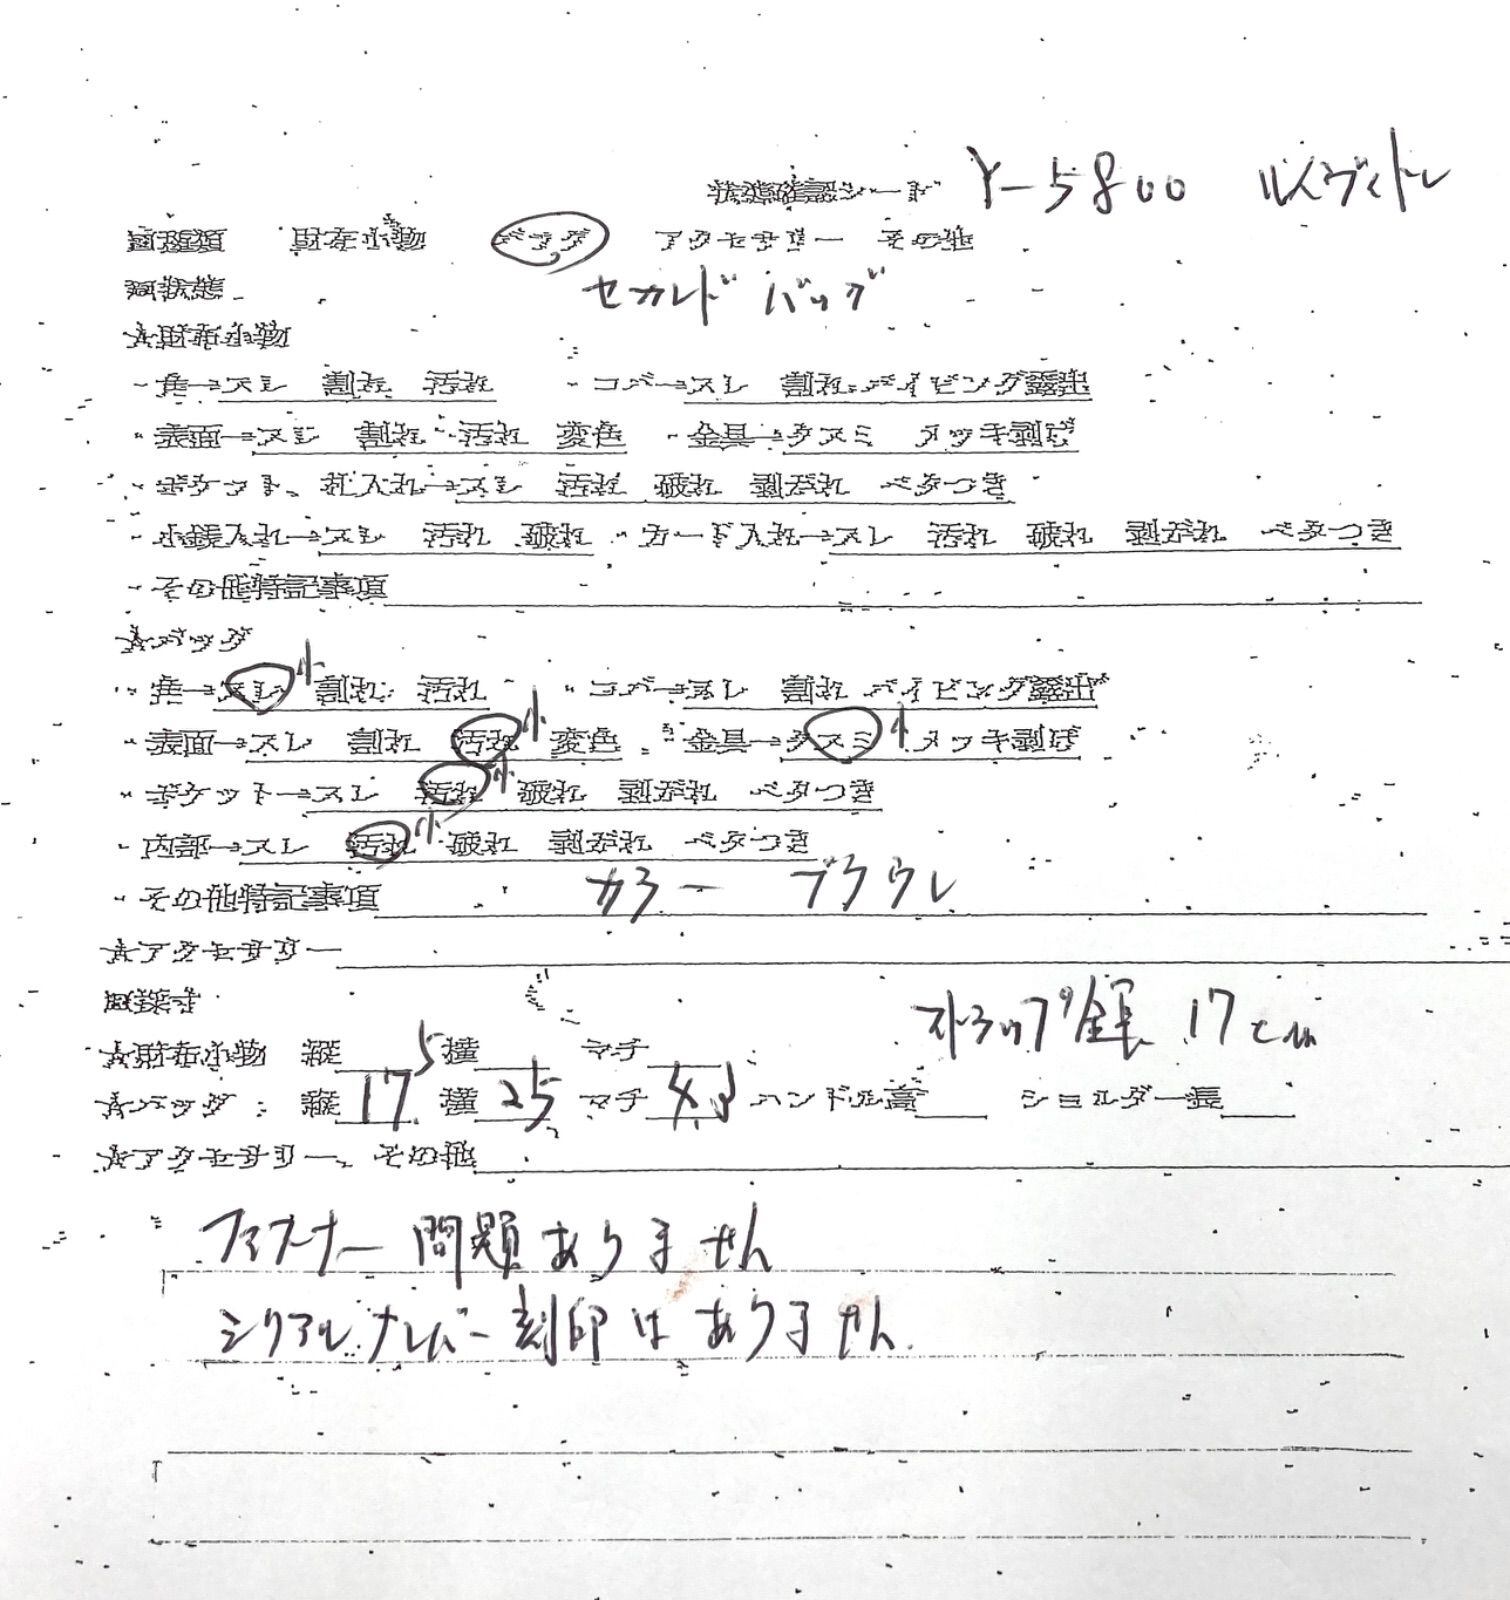 状態確認シート Y-5800 ルイヴィトン
■種類 財布小物 バッグ アクセサリー その他
■状態 セカンドバッグ
★財布小物
・角→スレ 割れ 汚れ ・コバ→スレ 割れ パイピング露出
・表面→スレ 割れ 汚れ 変色 ・金具→クスミ メッキ剥げ
・ポケット、札入れ→スレ 汚れ 破れ 剥がれ ベタつき
・小銭入れ→スレ 汚れ 破れ ・カード入れ→スレ 汚れ 破れ 剥がれ ベタつき
・その他特記事項
★バッグ
・角→スレ小 割れ 汚れ ・コバ→スレ 割れ パイピング露出
・表面→スレ 割れ 汚れ小 変色 ・金具→クスミ小 メッキ剥げ
・ポケット→スレ 汚れ小 破れ 剥がれ ベタつき
・内部→スレ 汚れ小 破れ 剥がれ ベタつき
・その他特記事項 カラー ブラウン
★アクセサリー
■採寸 ストラップ全長 17cm
★財布小物 縦 横 マチ
★バッグ 縦 17.5 横 25 マチ ハンドル高 ショルダー長
★アクセサリー、その他
ファスナー問題ありません
シリアルナンバー刻印はありません.